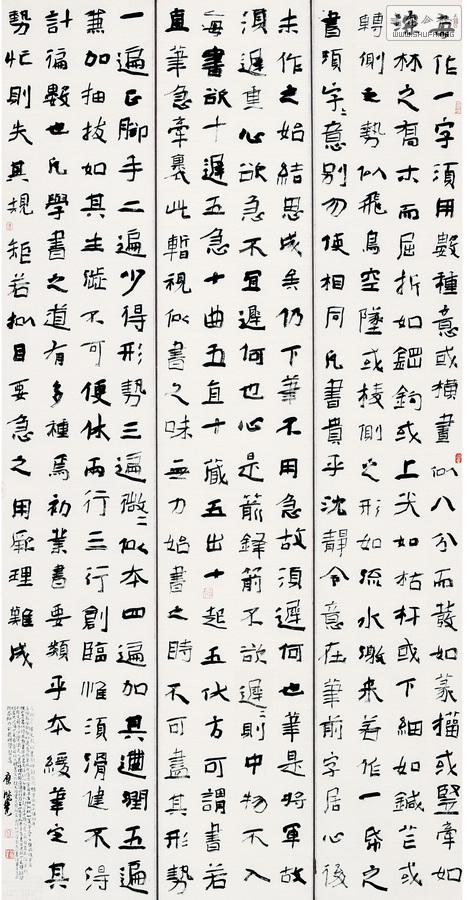 若作一字須用數種意或橫畫似八分而發如篆籀或豎牽如
深林之喬木而屈折如鋼鉤或上尖如枯杆或下細如鍼芒或
轉側之勢似飛鳥空墜或棱側之形如流水激來若作一紙之
書須字〻意別勿使相同凡書貴乎沈靜令意在筆前字居心後
未作之始結思成矣仍下筆不用急故須遲何也筆是將軍故
須遲重心欲急不宜遲何也心是箭鋒箭不欲遲〻則中物不入
每書欲十遲五急十曲五直十藏五出十起五伏方可謂書若
直筆急牽裹此暫視似書之味無力始書之時不可盡其形勢
一遍正腳手二遍少得形勢三遍微〻似本四遍加其遒潤五遍
兼加抽拔如其生澁不可便休兩行三行創臨惟須滑健不得
計徧數也凡學書之道有多種焉初業書要類乎本緩筆定其
勢忙則失其規矩若擬目要急之用厥理難成